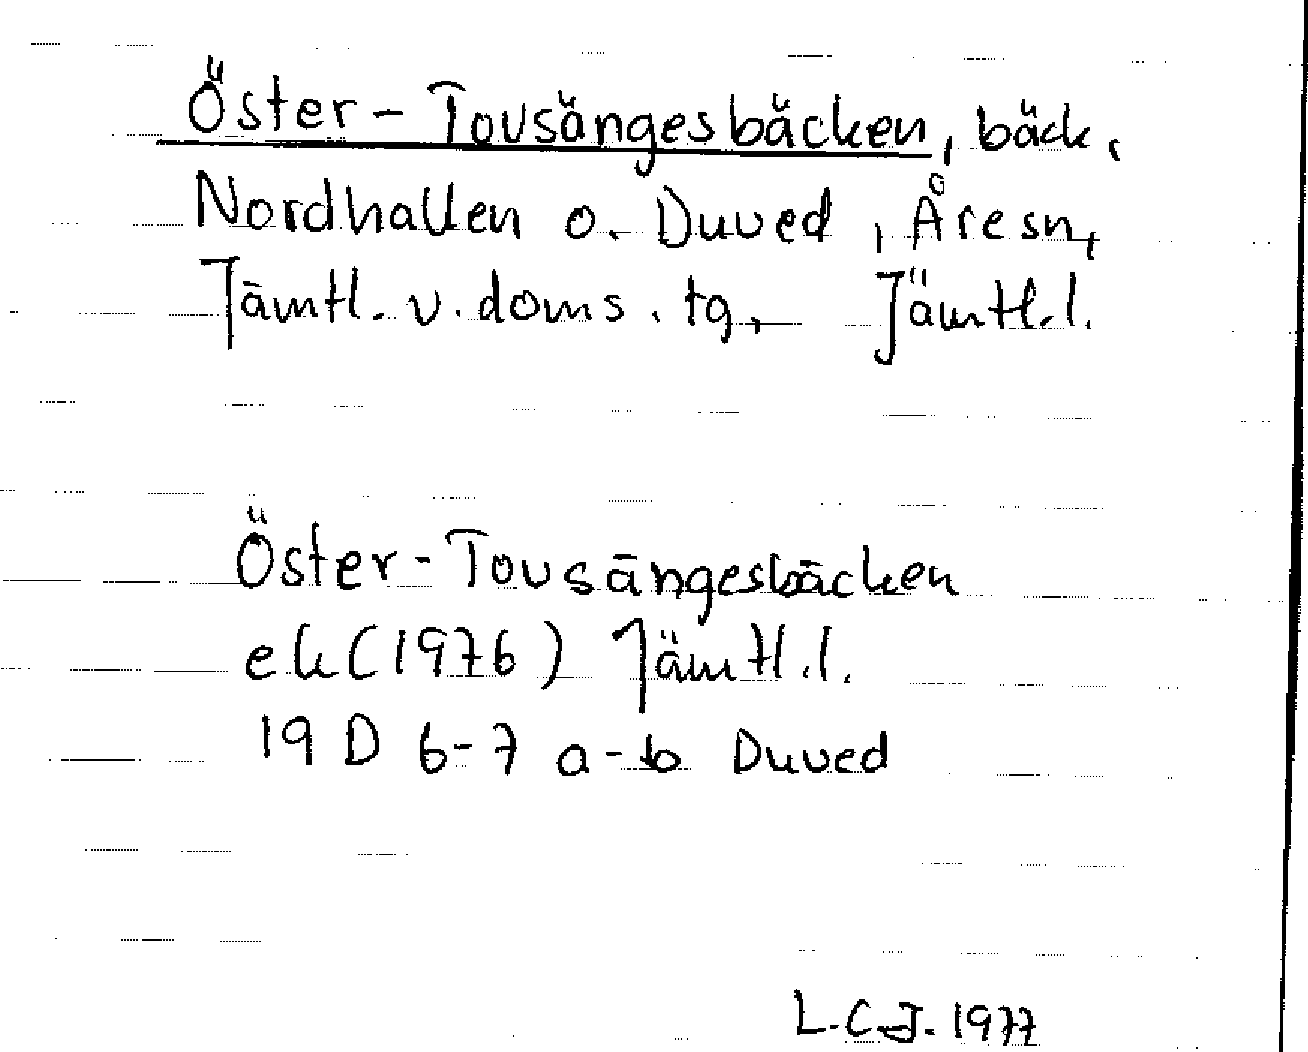 Öster-Tovsängesbäcken, bäck,
Nordhallen o. Duved, Åresn,
Jämtl. v. doms. tg, Jämtl.l.
Öster-Tovsängesbäcken
ek (1976) Jämtl.l.
19 D 6-7 a-b Duved
L.C.J. 1977